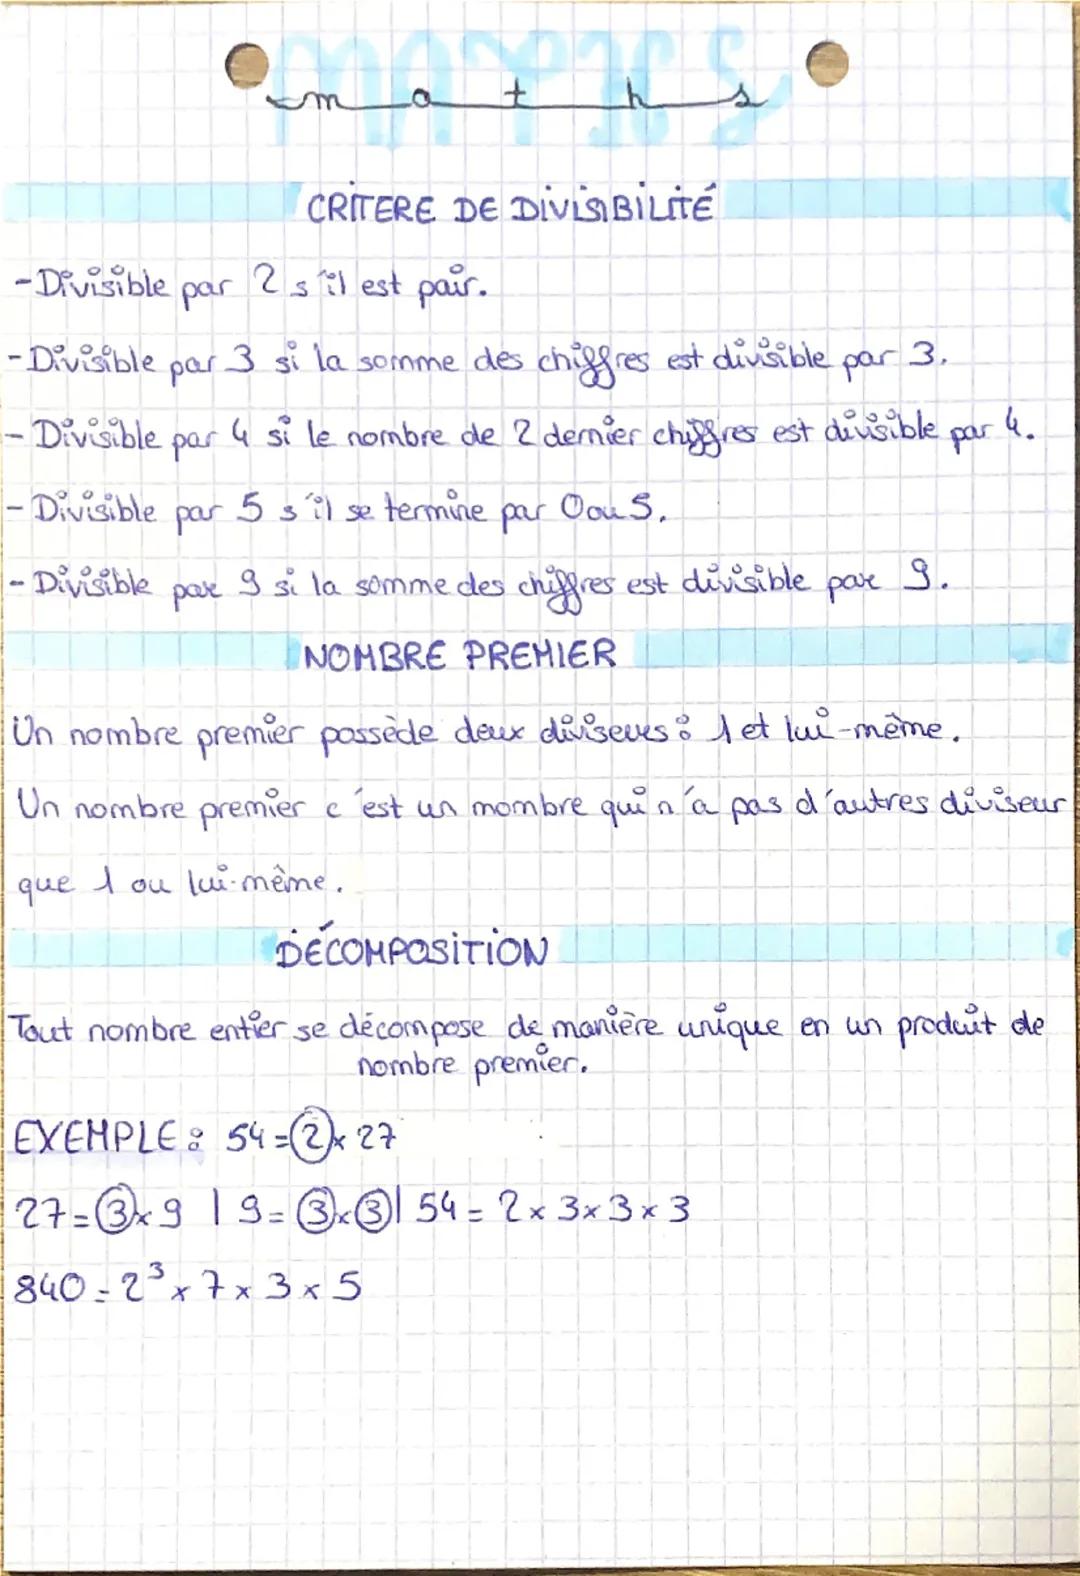 maths
CRITERE DE DIVISIBILITÉ
- Divisible par 2 s'il est pair.
- Divisible par 3 si la somme des chiffres est divisible par 3.
- Divisible par 4 si le nombre de 2 dernier chiffres est divisible par 4.
- Divisible par 5 s'il se termine par 0 ou 5.
- Divisible par 9 si la somme des chiffres est divisible par 9.
NOMBRE PREMIER
Un nombre premier possède deux diviseurs : 1 et lui-même.
Un nombre premier c'est un nombre qui n'a pas d'autres diviseur
que 1 ou lui-même.
DÉCOMPOSITION
Tout nombre entier se décompose de manière unique en un produit de
nombre premier.
EXEMPLE : 54 = 2 x 27
27 = 3 x 9 | 9 = 3 x 3 | 54 = 2 x 3 x 3 x 3
840 = 2³ x 7 x 3 x 5